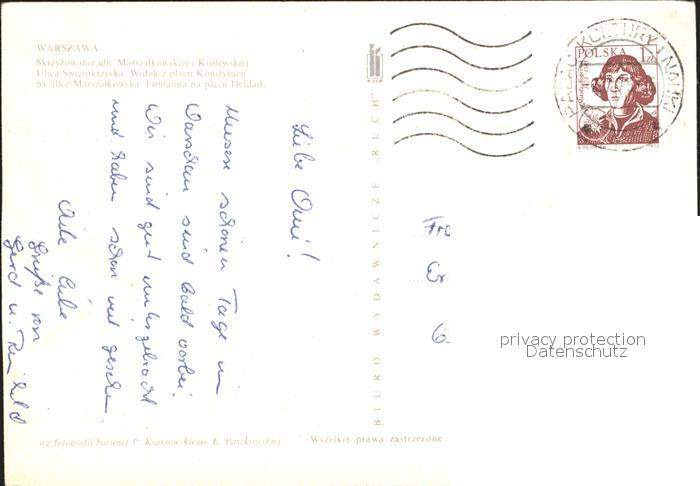 WARSZAWA
Skrzyżowanie ulic Marszałkowskiej i Królewskiej.
Ulica Świętokrzyska. Widok z placu Konstytucji
na ulicę Marszałkowską. Fontanna na placu Defilad.
Liebe Omi!
Unsere schönen Tage in
Warschau sind bald vorbei.
Wir sind gut untergebracht
und haben schon viel gesehen.
Viele liebe
Grüße von
Gerd u.
BIURO WYDAWNICZE „RUCH"
POLSKA 1 ZŁ
PAŁAC KULTURY I NAUKI
Fra
privacy protection
Datenschutz
wg fotografii barwnej P. Krassowskiego, E. Paszkowskiej
Wszelkie prawa zastrzeżone